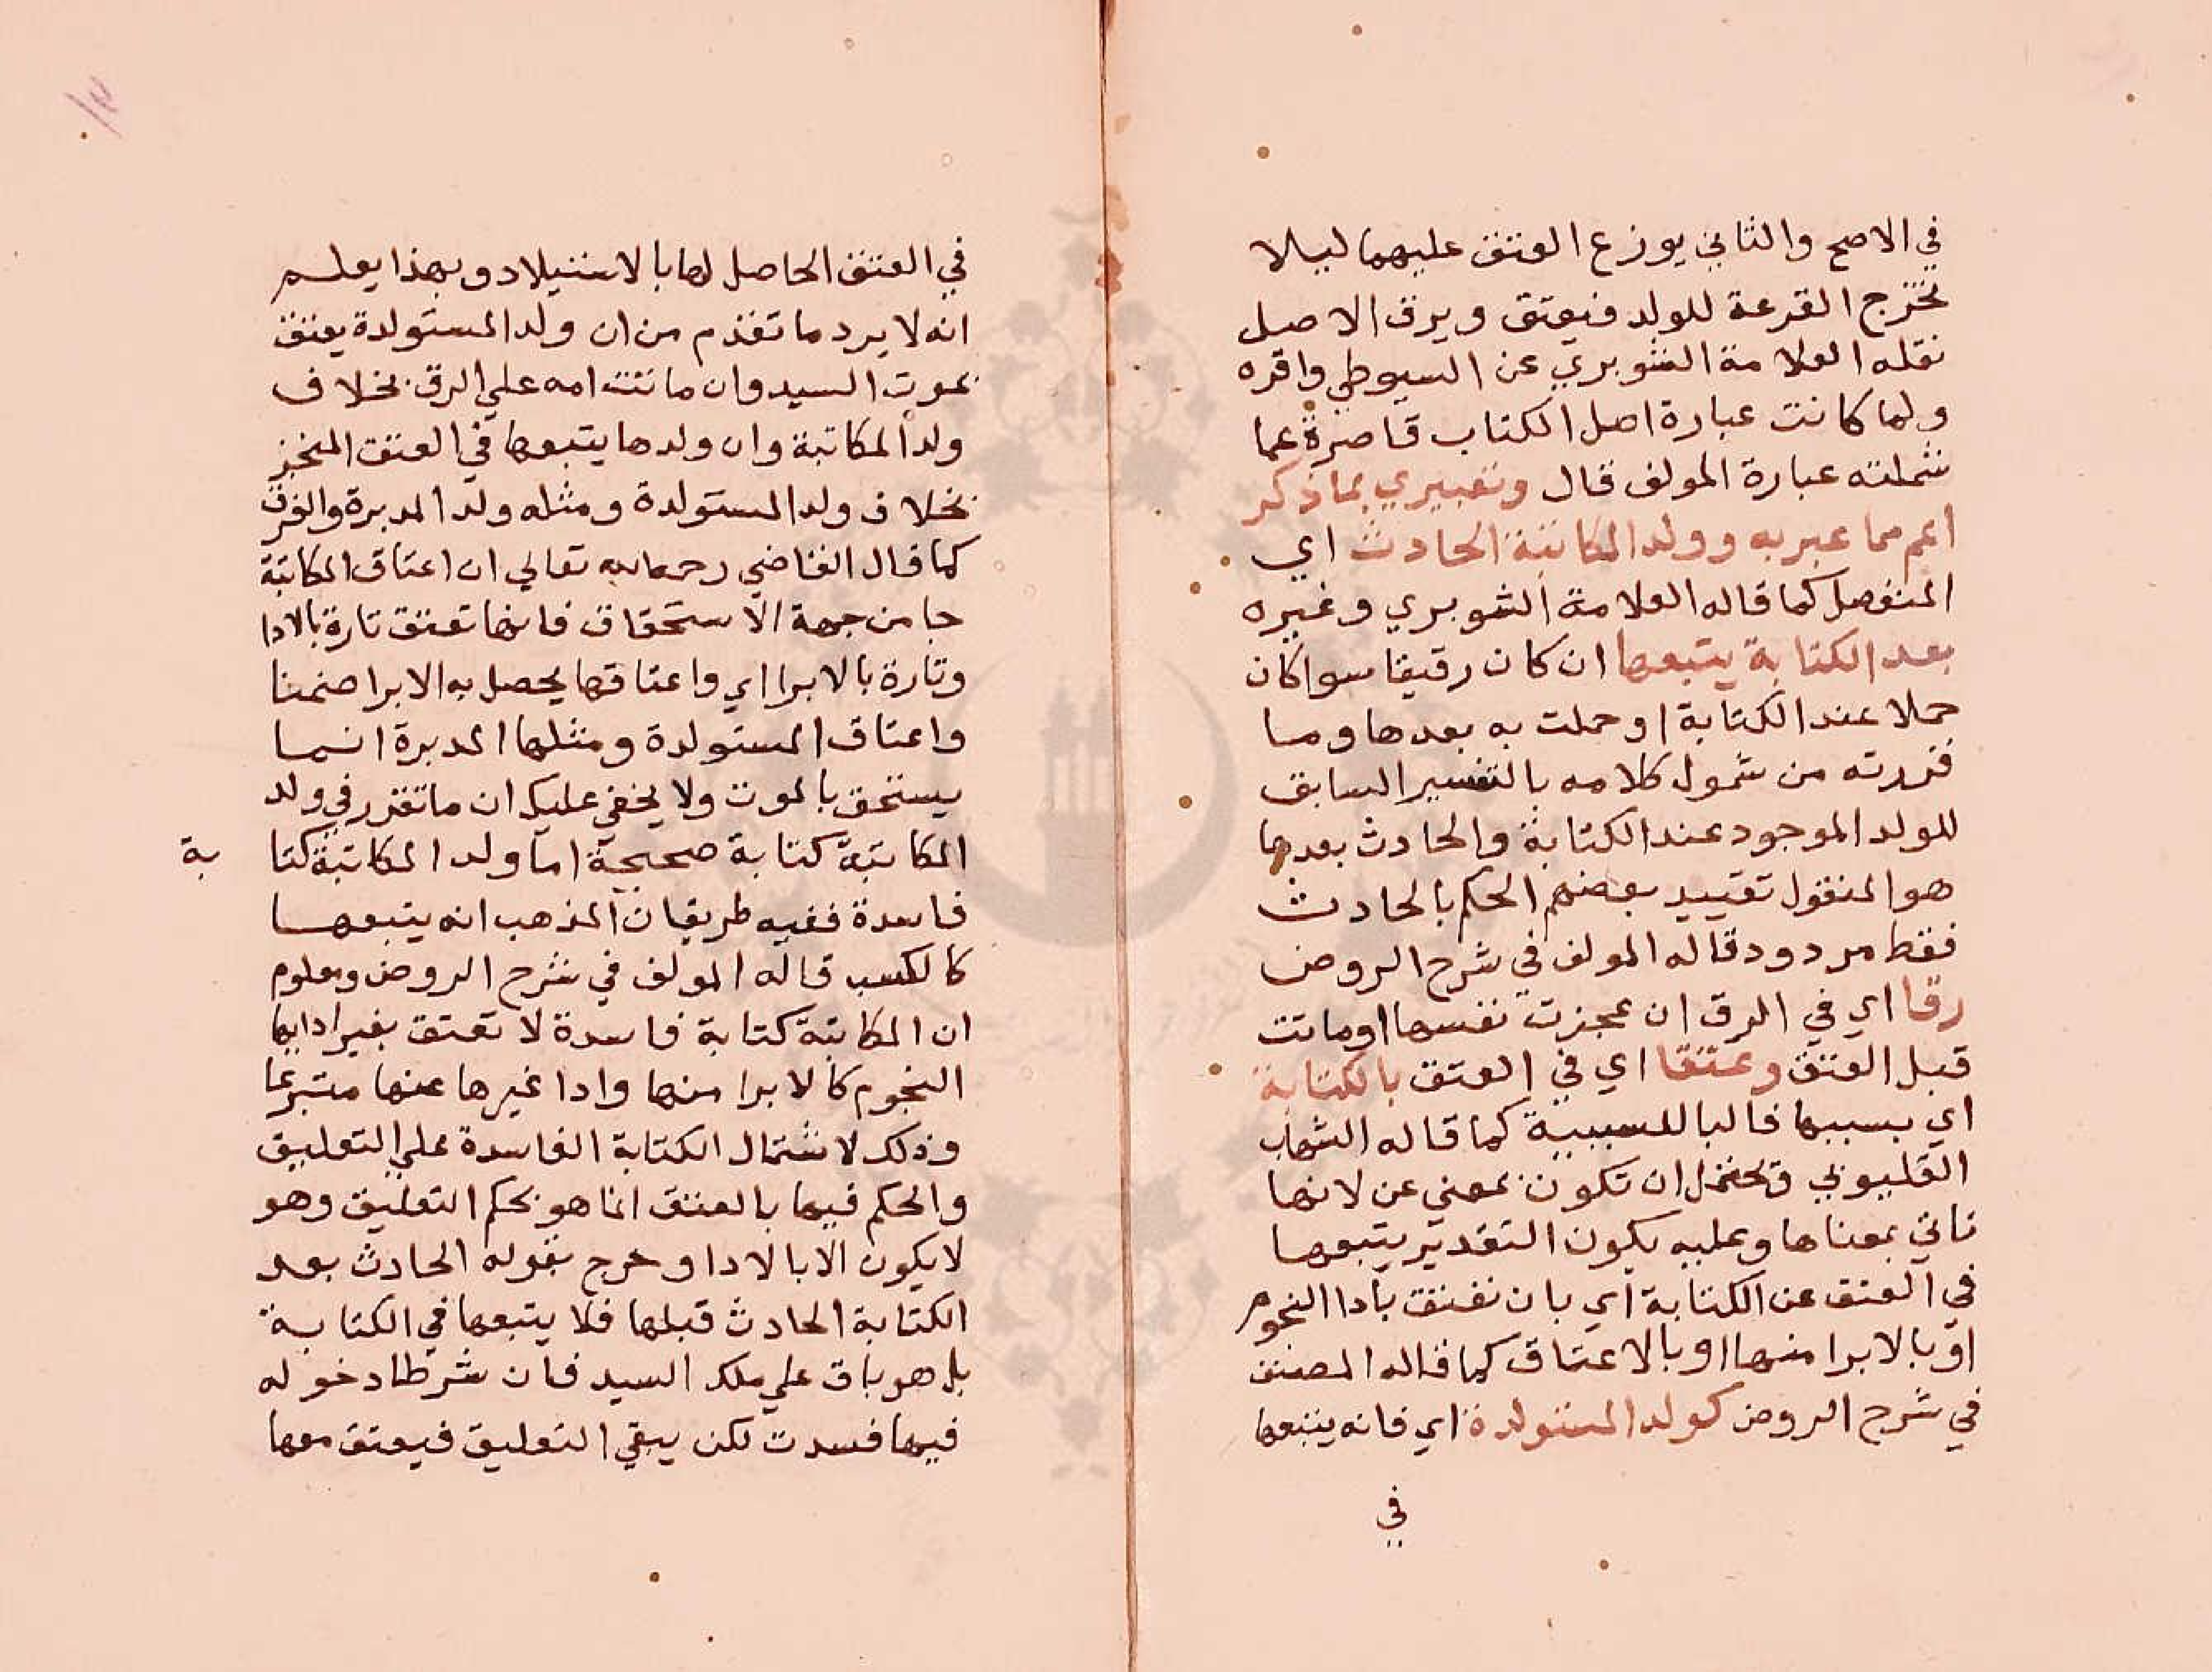 في الاصح والثاني يوزع العتق عليهما ليلا
تخرج القرعة للولد فيعتق ويرق الاصل
نقله العلامة الشوبري عن السيوطي واقره
ولما كانت عبارة اصل الكتاب قاصرة عما
شملته عبارة المولف قال وتعبيري بما ذكر
اعم مما عبر به وولد المكاتبة الحادث اي
المنفصل كما قاله العلامة الشوبري وغيره
بعد الكتابة يتبعها ان كان رقيقا سوا كان
حملا عند الكتابة او حملت به بعدها وما
قررته من شمول كلامه بالتفسير السابق
للولد الموجود عند الكتابة والحادث بعدها
هو المنقول تقييد بعضهم الحكم بالحادث
فقط مردود قاله المولف في شرح الروض
رقا اي في الرق ان عجزت نفسها او ماتت
قبل العتق وعتقا اي في العتق بالكتابة
اي بسببها فالبا للسببية كما قاله الشهاب
القليوبي ويحتمل ان تكون بمعني عن لانها
تاتي بمعناها وعليه يكون التقدير يتبعها
في العتق عن الكتابة اي بان تعتق بادا النجوم
او بالابرا منها او بالاعتاق كما قاله المصنف
في شرح الروض كولد المستولدة اي فانه يتبعها
في
في العتق الحاصل لها بالاستيلاد وبهذا يعلم
انه لا يرد ما تقدم من ان ولد المستولدة يعتق
بموت السيد وان ماتت امه علي الرق بخلاف
ولد المكاتبة وان ولدها يتبعها في العتق المنجز
بخلاف ولد المستولدة ومثله ولد المدبرة والفرق
كما قال القاضي رحمه الله تعالي ان اعتاق المكاتبة
جا من جهة الاستحقاق فانها تعتق تارة بالادا
وتارة بالابرا اي واعتاقها يحصل به الابرا ضمنا
واعتاق المستولدة ومثلها المدبرة انما
يستحق بالموت ولا يخفي عليك ان ما تقرر في ولد
المكاتبة كتابة صحيحة اما ولد المكاتبة كتا بة
فاسدة ففيه طريقان المذهب انه يتبعها
كالكسب قاله المولف في شرح الروض ومعلوم
ان المكاتبة كتابة فاسدة لا تعتق بغير ادايها
النجوم كالابرا منها وادا غيرها عنها متبرعا
وذلك لاشتمال الكتابة الفاسدة علي التعليق
والحكم فيها بالعتق انما هو بحكم التعليق وهو
لا يكون الا بالادا وخرج بقوله الحادث بعد
الكتابة الحادث قبلها فلا يتبعها في الكتابة
بل هو باق علي ملك السيد فان شرطا دخوله
فيها فسدت لكن يبقي التعليق فيعتق معها